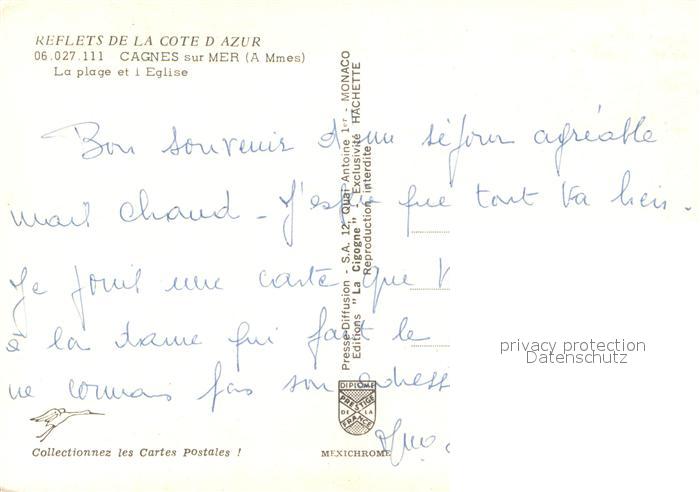 REFLETS DE LA COTE D AZUR
06.027.111 CAGNES sur MER (A Mmes)
La plage et l Eglise
Bon souvenir d'un séjour agréable
mais chaud - J'espère que tout va bien.
Je joins une carte que V
à la dame qui fait le
ne connais pas son adress
Presse-Diffusion - S.A. 12, Quai Antoine 1er - MONACO
Editions "La Cigogne" - Exclusivité HACHETTE
Reproduction interdite
privacy protection
Datenschutz
DIPLOME
PRESTIGE
DE LA
FRANCE
Collectionnez les Cartes Postales !
MEXICHROME